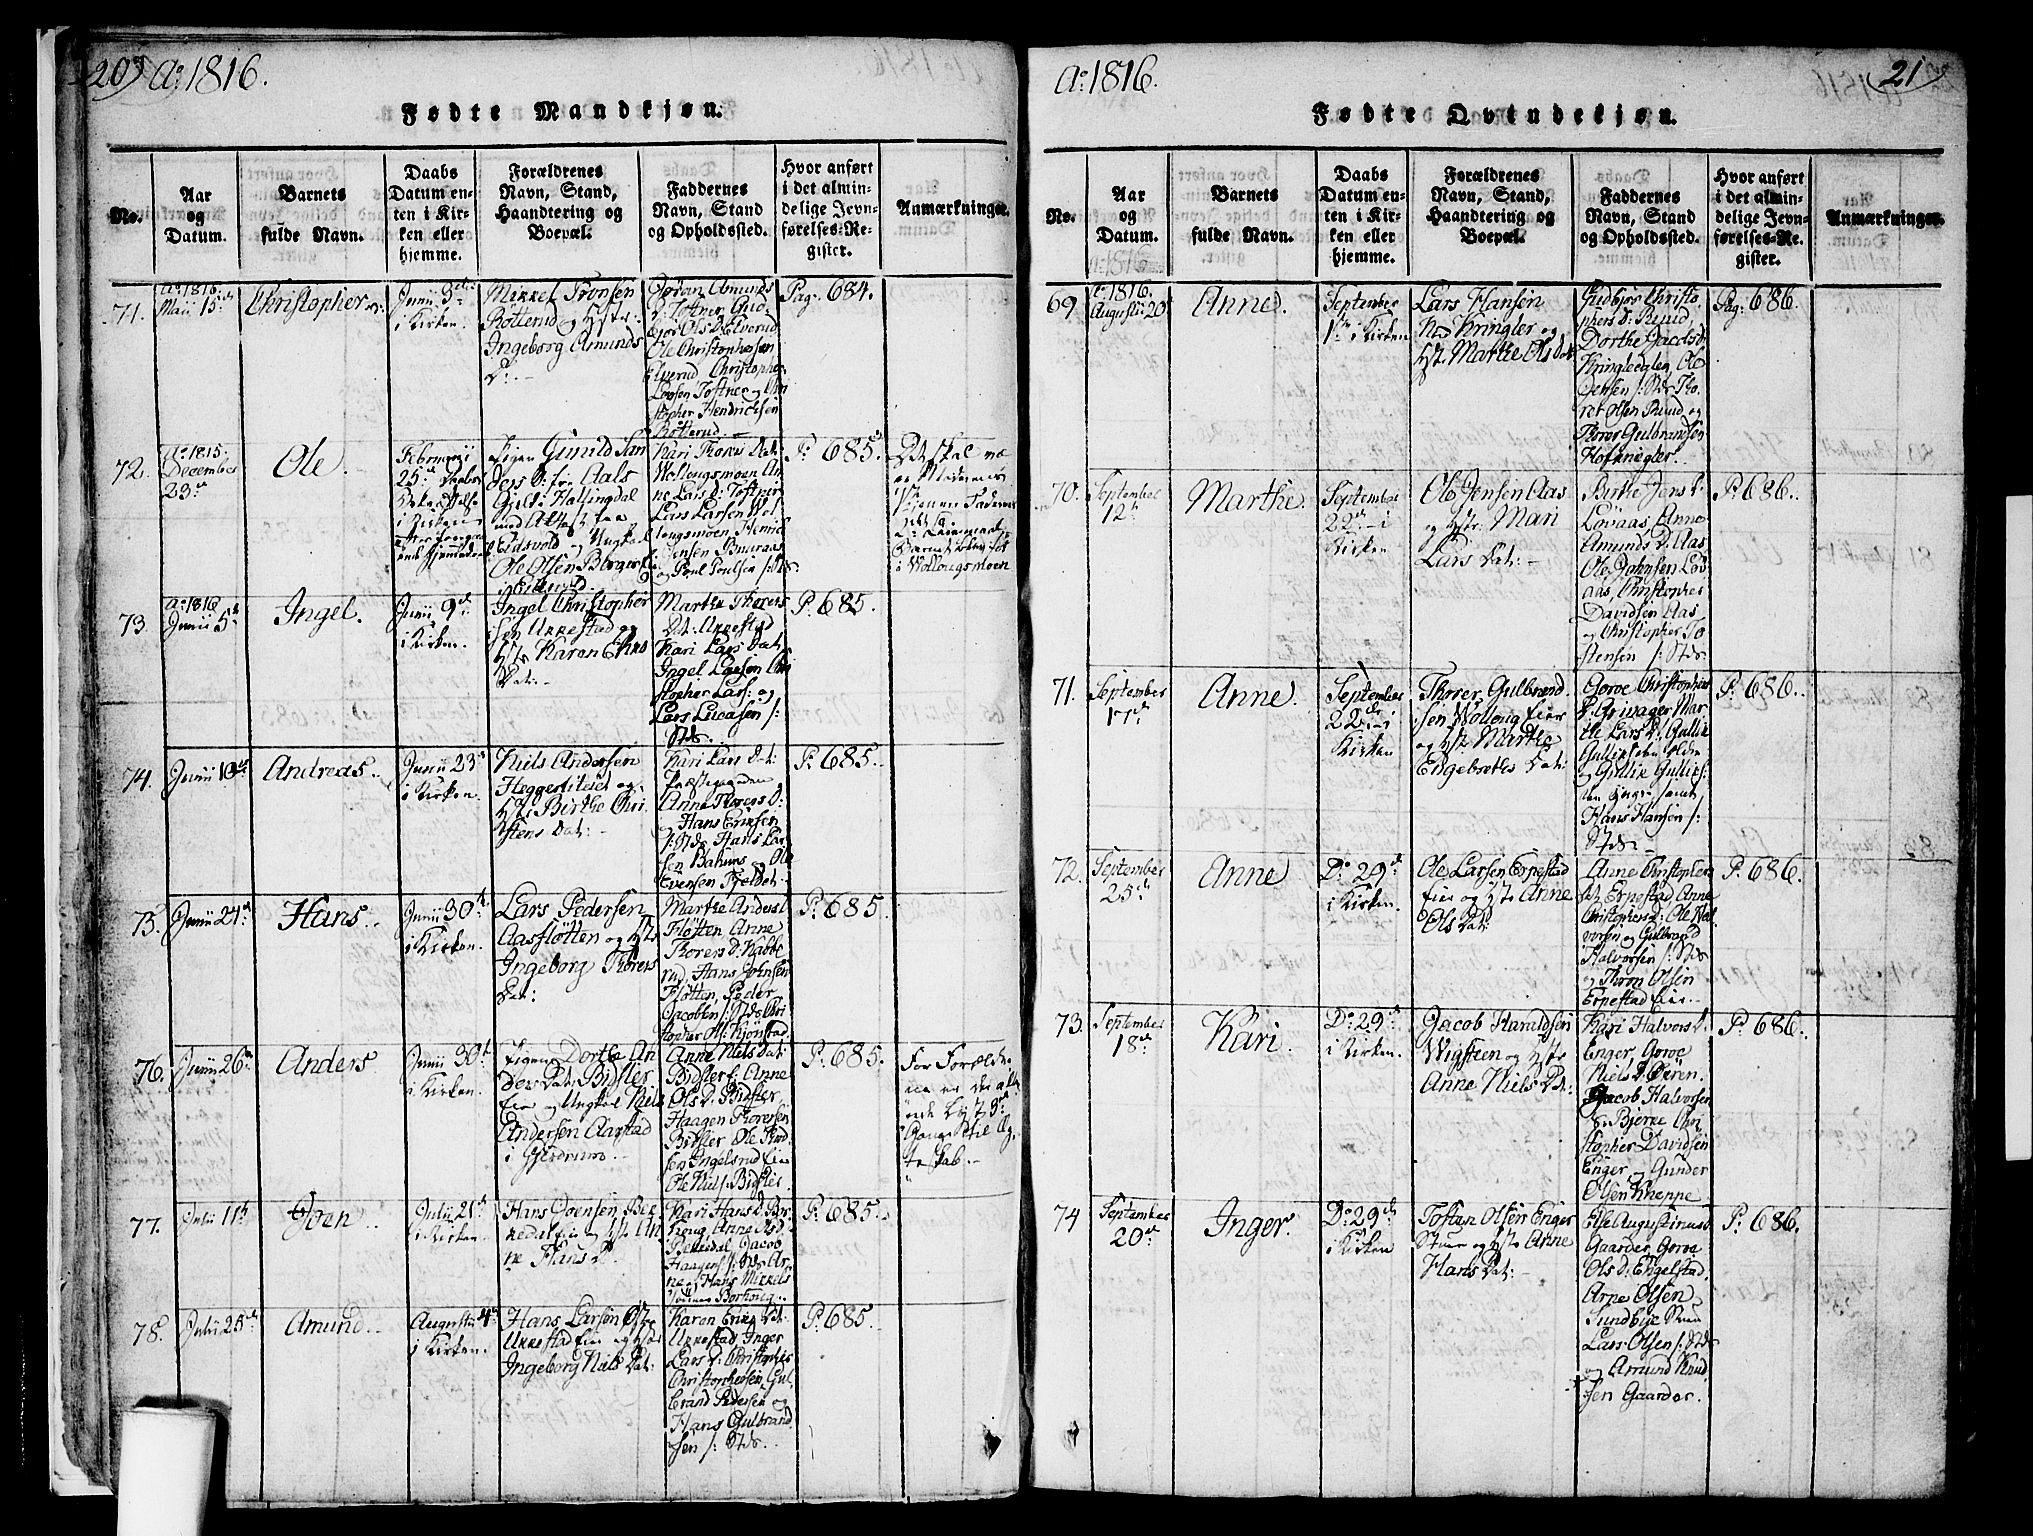 20
Aº 1816.
Fødte Mandkjøn.
No.
Aar
og
Datum.
Barnets
fulde Navn.
Daabs
Datum en-
ten i Kir-
ken eller
hjemme.
Forældrenes
Navn, Stand,
Haandtering og
Boepæl.
Faddernes
Navn, Stand
og Opholdssted.
Hvor anført
i det almin-
delige Jevn-
førelses-Re-
gister.
Anmærkninger.
71.
Aº 1816.
Maii 15
Christopher
Junii 3
i Kirken.
Mikkel Tronsen
Rotterud og Hstr:
Ingeborg Amunds
D:
Jordan Amunds
D: Toftner, Gud
bjør Ols D. Elverud
Ole Christophersen
Elverud Christopher
Larsen Toftner og Chri
stopher Hendricksen
Rotterud.
Pag. 684.
72.
Aº 1815.
December
23
Ole
Februarii
25
i Kirken
Pigen Gunild San
ders D: fra Aals
Gield i Hallingdal
med Attest fra
Eidsvold og Ungkal
Ole Olsen Berger
i Eidsvold
Kari Thores Dat:
Wollongsmoen An
ne Lars D: Toftner
Lars Larsen Wol
longsmoen
og Poul Poulsen
P. 685.
Det skal væ
re Moderens
1ste
2det
i Wollongsmoen
73.
Aº 1816
Junii 5
Ingel.
Junii 9
i Kirken.
Ingel Christopher
sen Ukkestad og
Hstr Karen Eriks
Dat:
Marthe Thorers
Dat: Ukkestad
Kari Lars Dat:
Ingel Larsen Chri
stopher Lars: og
Lars Lucasen
Stds.
P. 685.
74.
Junii 10
Andreas.
Junii 23
i Kirken.
Niels Andersen
Heggerteiet og
Hstr Birthe Chri
stens Dat:
Kari Lars Dat:
Præstegaarden
Anne Thorers D:
og Hans Eriksen
Stds. Hans Lar
sen Bahuus og Ole
Evensen Fjeldet.
P. 685.
75.
Junii 21
Hans.
Junii 30
i Kirken.
Lars Pedersen
Aasfløtten og Hstr
Ingeborg Thorers
Dat:
Marthe Anders D
Fløtten Anne
Thorers D. Kabbe
rud, Hans Johnsen
Fløtten, Peder
Jacobsen Stds Chri
stopher Ols: Kjønstad.
P. 685.
76.
Junii 26
Anders
Junii 30
i Kirken.
Pigen Dorthe An
ders Dat. Bidsler
Eier og Ungkal Niels
Andersen Aarstad
i Gjerdrum.
Anne Niels Dat:
Bidsler Anne
Ols D. Bidsler
Haagen Thoresen
Bidsler Ole Thord
sen Ingelsrud Eier
Ole Niels: Bidsler
P. 685.
For Forældre
ne er der alle
rede lyst 3
Gange til Eg
teskab.
77.
Julii 11
Joen
Julii 21
i Kirken.
Hans Joensen Bek
kedal Eier og Hstr An
ne Hans D:
Kari Hans D. Bor
keng Anne Ols D
Bekkedal, Jacob
Haagens: Stds Ar
ne og Hans Mikkels
Sønner Borkeng
P. 685.
78.
Julii 25
Amund.
Augustii 4
i Kirken.
Hans Larsen Østre
Ukkestad Eier og Hstr
Ingeborg Niels Dat:
Karen Eriks Dat:
Ukkestad Inger
Lars D: Christopher
Christophersen, Gul
brand Pedersen og
Hans Gulbrand
sen Stds.
P. 685.
Aº 1816.
21
Fødte Qvindekjøn.
No.
Aar
og
Datum.
Barnets
fulde Navn.
Daabs
Datum en-
ten i Kir-
ken eller
hjemme.
Forældrenes
Navn, Stand,
Haandtering og
Boepæl.
Faddernes
Navn, Stand
og Opholdssted.
Hvor anført
i det almin-
delige Jevn-
førelses-Re-
gister.
Anmærkninger.
69
Aº 1816.
Augustii 20
Anne
September
1 i Kirken
Lars Hansen
Kringler og
Hstr. Marthe Ols Dat
Gudbjør Christo
phers D: Ruud
Dorthe Jacobs D.
Kringlegler, Ole
Jensen Stds Tho
rer Olsen Ruud og
Thorer Gulbrandsen
Pag: 686.
70.
September
12
Marthe
September
22 i
Kirken
Ole Jensen Aas
og Hstr. Mari
Lars Dat:
Birthe Jens D.
Lovaas, Anne
Amunds D: Aas
Ole Johnsen Lov
aas, Christopher
Davidsen Aas
og Christopher To
stensen Stds
P. 686.
71.
September
17
Anne
September
22 i
Kirken
Thorer Gulbrand
sen Wollong Eier
og Hstr. Marthe
Engebreths Dat:
Goroe Christophers
D: Mar
the Lars D. Gullik
Gulliksen Ældre
og Gullik Gulliks:
den yngre samt
Hans Hansen
Stds
P. 686.
72.
September
25
Anne
Dº 29
i Kirken.
Ole Larsen Erpestad
Eier og Hstr Anne
Ols Dat:
Anne Christophers
D: Erpestad Anne
Christophers D: Ole Hal
vorsen og Gulbrand
Halvorsen Stds
og Thron Olsen
Erpestad Eier
P. 686.
73.
September
18
Kari
Dº 29
i Kirken.
Jacob Haraldsen
Wigsteen og Hstr
Anne Niels Dat:
Kari Halvors D.
Enger, Goroe
Niels D. Øeren,
Jacob Halvorsen
Bjerke Chri
stopher Davidsen
Enger og Gunder
Olsen Kneppe
P. 686.
74
September
20
Inger.
Dº 29
i Kirken
Tosten Olsen Enger
Stuer og Hstr Anne
Hans Dat:
Else Augustinus D
Gaarder, Goroe
Ols D: Engelstad
Arne Olsen
Sundbye Stuer
Lars Olsen Stds
og Amund Knud
sen Gaarder.
P. 686.